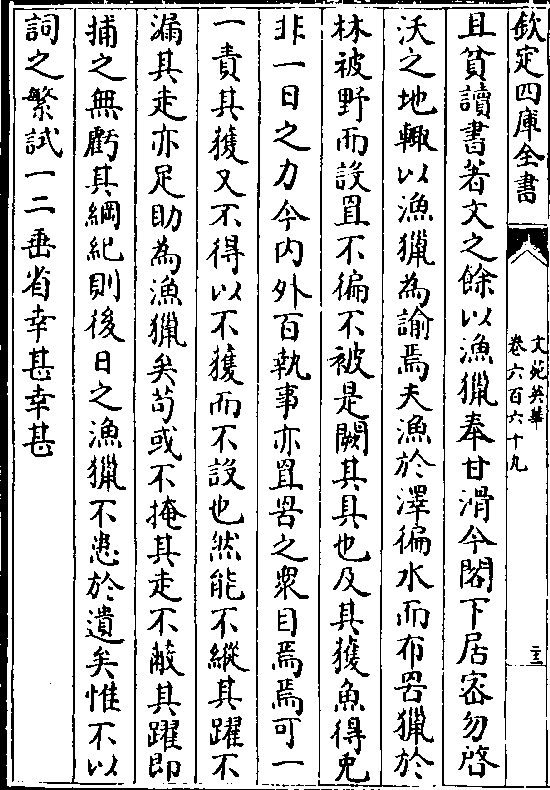 欽定四庫全書
文苑英華
卷六百六十九
且貧讀書著文之餘以漁獵奉甘滑今閣下居密勿啓
沃之地輙以漁獵為諭焉夫漁於澤徧水而布罟獵於
林被野而設罝不徧不被是闕其具也及其獲魚得兔
非一日之力今内外百執事亦罝罟之衆目焉焉可一
一責其獲又不得以不獲而不設也然能不縱其躍不
漏其走亦足助為漁獵矣苟或不掩其走不蔽其躍即
捕之無虧其綱紀則後日之漁獵不患於遺矣惟不以
詞之繁試一二垂省幸甚幸甚